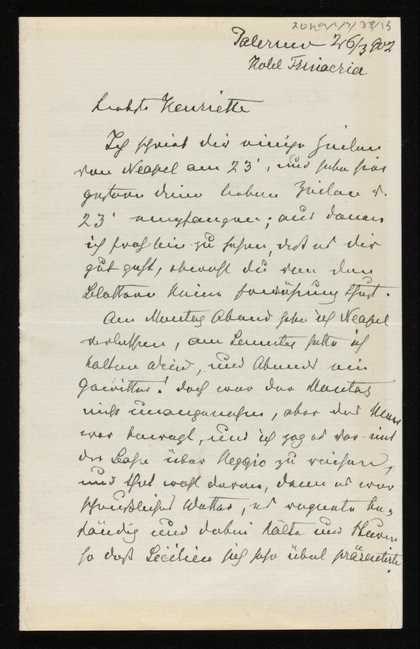 Palermo 26/3 902
Hotel Trinacria
Liebste Henriette
Ich schrieb dir einige Zeilen
von Neapel am 23', und habe hier
gestern deine lieben Zeilen v.
23' empfangen; aus denen
ich froh bin zu sehen, daß es dir
gut geht, obwohl du von den
Blattern keine Erwähnung thust.
Am Montag Abend habe ich Neapel
verlassen, am Sonntag hatte ich
kalten Wind, und Abends ein
Gewitter! doch war der Montag
nicht unangenehm, aber das Meer
war bewegt, und ich zog es vor mit
der Bahn über Reggio zu reisen,
und that wohl daran, denn es war
scheußliches Wetter, es regnete be-
ständig und dabei Kälte und Sturm
so daß Sicilien sich sehr übel präsentirte.